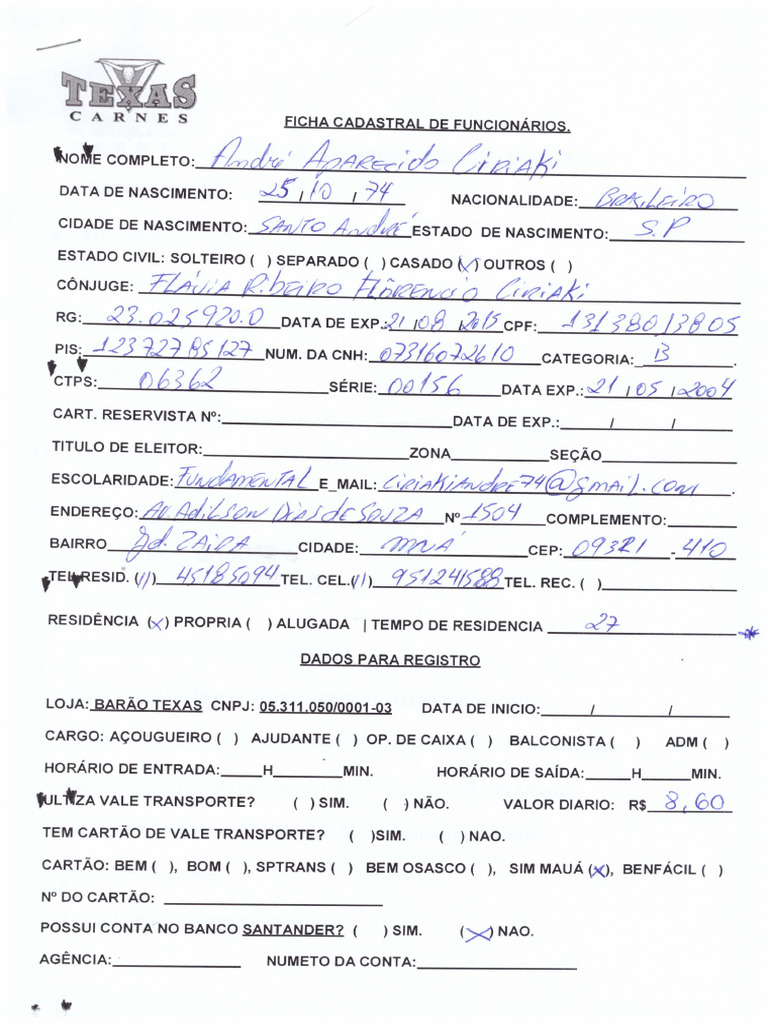 TEXAS
CARNES
FICHA CADASTRAL DE FUNCIONÁRIOS.
NOME COMPLETO: André Aparecido Ciriaki
DATA DE NASCIMENTO: 25 / 10 / 74 NACIONALIDADE: BRASILEIRO
CIDADE DE NASCIMENTO: SANTO ANDRÉ ESTADO DE NASCIMENTO: S.P
ESTADO CIVIL: SOLTEIRO ( ) SEPARADO ( ) CASADO (X) OUTROS ( )
CÔNJUGE: FLÁVIA RIBEIRO FLÔRENCIO CIRIAKI
RG: 23.025920.0 DATA DE EXP.: 21 / 08 / 2015 CPF: 13138013805
PIS: 12372785127 NUM. DA CNH: 07316072610 CATEGORIA: B .
CTPS: 06362 SÉRIE: 00156 DATA EXP.: 21 / 05 / 2004
CART. RESERVISTA Nº: DATA DE EXP.: / /
TITULO DE ELEITOR: ZONA SEÇÃO .
ESCOLARIDADE: FUNDAMENTAL E_MAIL: CIRIAKIANDRE74@gmail.com .
ENDEREÇO: AV Adilson Dias de Souza Nº 1504 COMPLEMENTO: .
BAIRRO Jd. ZAIRA CIDADE: MAUÁ CEP: 09321 - 410
TEL RESID. (11) 45185094 TEL. CEL.(11) 951241588 TEL. REC. ( )
RESIDÊNCIA (X) PROPRIA ( ) ALUGADA | TEMPO DE RESIDENCIA 27
DADOS PARA REGISTRO
LOJA: BARÃO TEXAS CNPJ: 05.311.050/0001-03 DATA DE INICIO: / /
CARGO: AÇOUGUEIRO ( ) AJUDANTE ( ) OP. DE CAIXA ( ) BALCONISTA ( ) ADM ( )
HORÁRIO DE ENTRADA: H MIN. HORÁRIO DE SAÍDA: H MIN.
ULTIZA VALE TRANSPORTE? ( ) SIM. ( ) NÃO. VALOR DIARIO: R$ 8,60
TEM CARTÃO DE VALE TRANSPORTE? ( )SIM. ( ) NAO.
CARTÃO: BEM ( ), BOM ( ), SPTRANS ( ) BEM OSASCO ( ), SIM MAUÁ (X), BENFÁCIL ( )
Nº DO CARTÃO:
POSSUI CONTA NO BANCO SANTANDER? ( ) SIM. (X) NAO.
AGÊNCIA: NUMETO DA CONTA: